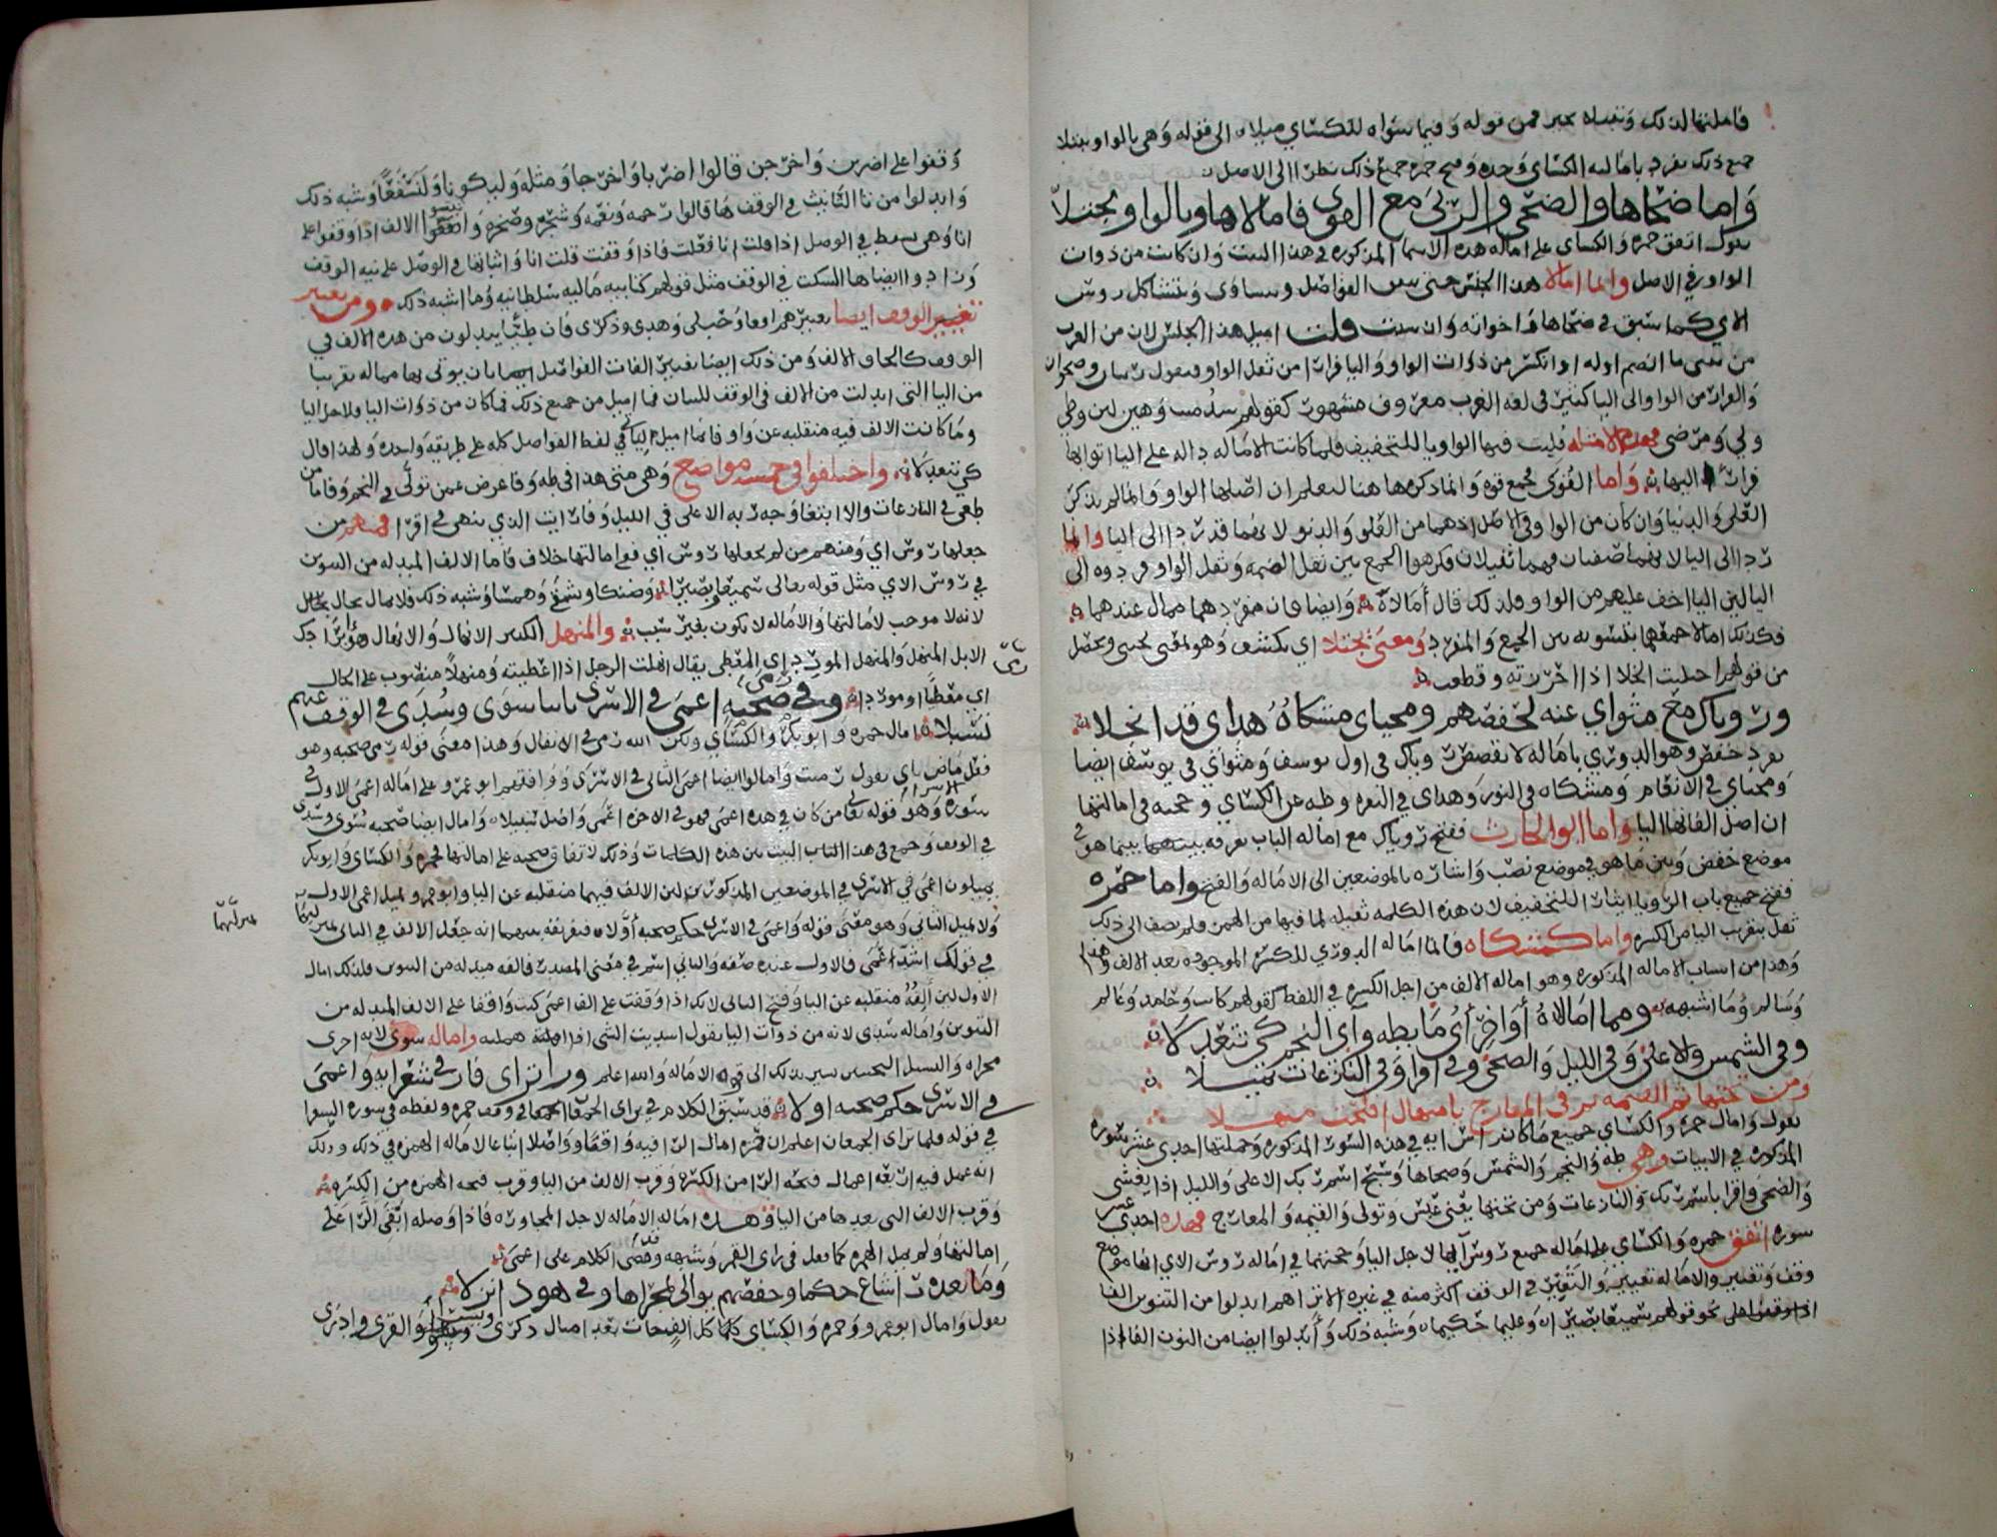 فاملتها لذلك وتقييده بحرف من قوله وفيما سواه للكسائي ميلا الى قوله وهي بالواو تبتلا
جميع ذلك تفرد بامالته الكسائي وحده وفتح حمزه جميع ذلك نظرا الى الاصل
وَاما ضحاها والضحى والربى مع القوى فامالاها وبالواو تجتلا
يقول اتفق حمزه والكسائي على اماله هذه الاسما المذكوره في هذا البيت وان كانت من ذوات
الواو في الاصل وانما امالا هذا الجنس حتى تتفق الفواصل وتتساوى وتتشاكل روس
الاي كما سبق في ضحاها واخواته وان شيت قلت اميل هذا الجنس لان من العرب
من يثني ما انضم اوله او انكسر من ذوات الواو واليا فرارا من ثقل الواو فيقول ربيان وضحيان
والفرار من الواو الى اليا كثير في لغه العرب معروف مشهور كقولهم سيد وميت وهين لين وطي
ولي ومرضى فهذه الامثله قلبت فيها الواو يا للتخفيف فلما كانت الاماله داله على اليا اتوا بها
فرارا اليها واما القوى فجمع قوه وانما ذكرها هنا ليعلم ان اصلها الواو وانما لم يذكر
العلى والدنيا وان كان من الواو في الاصل اذ هما من العلو والدنو لانهما قد ردا الى اليا وانما
ردا الى اليا لانهما صفتان فهما ثقيلان فكرهوا الجمع بين ثقل الضمه وثقل الواو فردوه الى
اليا لين اليا اخف عليهم من الواو فلذلك قال أمالاه وايضا فان مفردهما ممال عندهما
فكذلك امالا جمعهما بتسويه بين الجمع والمفرد ومعنى تجتلا اي تكشف وهو بمعنى تجنى وتحصل
من قولهم اجتليت الخلا اذا احرزته وقطعته
ورؤياك مع مثواي عنه لحفصهم ومحياي مشكاة هداي قد انجلا
تفرد حفص وهو الدوري باماله لا تقصص رؤياك في اول يوسف ومثواي في يوسف ايضا
ومحياي في الانعام ومشكاه في النور وهداي في البقره وطه عن الكسائي وحجته في امالتها
ان اصل الفاتها اليا واما ابو الحارث ففتح رؤياك مع اماله الباب تفرقه بينهما بينما هو في
موضع خفض وبين ما هو في موضع نصب واشاره بالموضعين الى الاماله والفتح واما حمزه
ففتح جميع باب الرؤيا ايثارا للتخفيف لان هذه الكلمه ثقيله لما فيها من الهمز فلم يضف الى ذلك
ثقل بتقريب اليا من الكسره واما كمشكاه فانما اماله الدوري للكسر الموجوده بعد الالف
وهذا من اسباب الاماله المذكوره وهو اماله الالف من اجل الكسره في اللفظ كقولهم كاتب وحامد وعالم
وسالم وما اشبهه ومما امالاه أواخر أي مّا بطه وآي النجم كي تتعدلا
وفي الشمس والاعلى وفي الليل والضحى وفي اقرا وفي النازعات تميلا
ومن تحتها ثم القيمه ثم في المعارج يا منهال افلحت منهلا
يقول وامال حمزه والكسائي جميع ما كان راس ايه في هذه السور المذكوره وجملتها احدى عشر سوره
المذكوره في الابيات وهي طه والنجم والشمس وضحاها وسبح اسم ربك الاعلى والليل اذا يغشى
والضحى واقرا باسم ربك والنازعات ومن تحتها يعني عبس وتولى والقيمه والمعارج فهذه احدى عشر
سوره اتفق حمزه والكسائي على اماله جميع روس آيها لاجل اليا وحجتهما في اماله روس الاي انها موضع
وقف وتغيير والاماله تغيير والتغيير في الوقف اكثر منه في غيره الا ترا انهم ابدلوا من التنوين الفا
اذا وقفوا على نحو قولهم سميعا بصيرا وعليما حكيما وشبه ذلك وأبدلوا ايضا من النون الفا اذا
وقفوا على اضربن واخرجن قالوا اضربا واخرجا ومثله وليكونا ولنسفعا وشبه ذلك
وابدلوا من تا التانيث في الوقف ها قالوا رحمه ونعمه وشجره وصخره واتفقوا الالف اذا وقفوا على
انا وهي تسقط في الوصل اذا قلت انا فعلت فاذا وقفت قلت انا واثباتها في الوصل على نيه الوقف
وزادوا ايضا ها السكت في الوقف مثل قولهم كتابيه ماليه سلطانيه وما اشبه ذلك ومن تغيير
تغيير الوقف ايضا تغييرهم افعا وحبلى وهدى وذكرى فان طيّا يبدلون من هذه الالف في
الوقف كالحاق الالف ومن ذلك ايضا تغيير الفات الفواصل ايضا بان يوتى بها مماله تقريبا
من اليا التي ابدلت من الالف في الوقف للبيان فما اميل من جميع ذلك فما كان من ذوات اليا فلاجل اليا
وما كانت الالف فيه منقلبه عن واو فانما اميل لياتي في لفظ الفواصل كله على طريقه واحده ولهذا قال
كي تتعدلا واختلفوا في خمسه مواضع وهي متى هذا في طه وفاعرض عمن تولى في النجم وفاما من
طغى في النازعات والا ابتغا وجه ربه الاعلى في الليل وفارايت الذي ينهى في اقرا فمنهم من
جعلها روس اي ومنهم من لم يجعلها روس اي ففي امالتها خلاف فاما الالف المبدله من التنوين
في روس الاي مثل قوله تعالى سميعا بصيرا وضنكا ونسفا وهمسا وشبه ذلك فلا يمال بحال
لانه لا موجب لامالتها والاماله لا تكون بغير سبب والمنهل الكثير الانهال والانهال هو ايراد
الابل المنهل والمنهل المورد اي المعطي يقال انهلت الرجل اذا اعطيته ومنهلا منصوب على الحال
اي معطيا او موردا
رمى صحبة اعمى في الاسرى ثانيا سوى وسدى في الوقف عنهم
تسبلا امال حمزه وابو بكر والكسائي ولكن الله رمى في الانفال وهذا معنى قوله رمى صحبه وهو
فعل ماض ياي تقول رميت وامالوا ايضا اعمى الثاني في الاسرى ووافقهم ابو عمرو على اماله اعمى الاول في
سوره الاسرا وهو قوله تعالى من كان في هذه اعمى فهو في الاخره اعمى واضل سبيلا وامال ايضا صحبه سوى وسدى
في الوقف وجمع في هذا الباب البيت بين هذه الكلمات وذلك لاتفاق صحبه على امالتها فحمزه والكسائي وابو بكر
يميلون اعمى في الاسرى في الموضعين المذكورين لين الالف فيهما منقلبه عن اليا وابو عمرو يميل اعمى الاول
ولا يميل الثاني وهو معنى قوله واعمى في الاسرى حكم صحبه أولا ففرقه بينهما انه جعل الالف في الثاني
في قولك اشد اعمى فالاول عنده صفه والثاني اسم في معنى المصدر فالفه مبدله من التنوين فلذلك امال
الاول لين ألفه منقلبه عن اليا وفتح الثاني لانك اذا وقفت على الف اعمى كنت واقفا على الالف المبدله من
التنوين واماله سدى لانه من ذوات اليا تقول اسديت الشي اذا اهملته واماله سوى لانه اجرى
مجراه والتسبل التحبيس يشير بذلك الى قوه الاماله والله اعلم ورا تراى فاز في شعرايه واعمى
في الاسرى حكم صحبه اولا قد سبق الكلام في تراى الجمعان في وقف حمزه ولفظه في سوره الشعرا
في قوله فلما تراى الجمعان اعلم ان حمزه امال الرا فيه واقفا وواصلا اتباعا لاماله الهمزه في ذلك وذلك
انه عمل فيه اربعه اعمال فتحه الرا من الكسره وقرب الالف من اليا وقرب فتحه الهمزه من الكسره
وقرب الالف التي بعدها من اليا فهذه اماله الاماله لاجل المجاوره فاذا وصله ابقى الرا على
امالتها ولم يمل الهمزه كما فعل في راى القمر وشبهه وقد مضى الكلام على اعمى
وَما بعد را شاع حكما وحفصهم يوالى بمجراها وفي هود انزلا
يقول وامال ابو عمرو وحمزه والكسائي كلما كل الفيحات بعد امثال ذكرى وبشرى والقرى وادرى